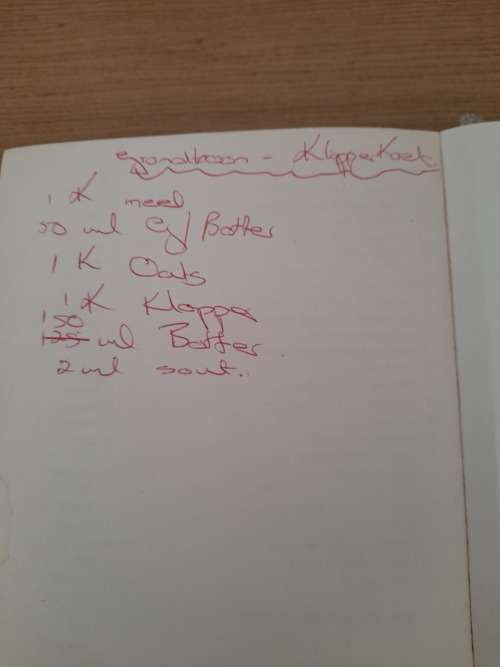 grondboon - KlapperKoek.
1 K meel
50 ml G/Botter
1 K Oats
1 K Klapper
150
125 ml Botter
2 ml sout.